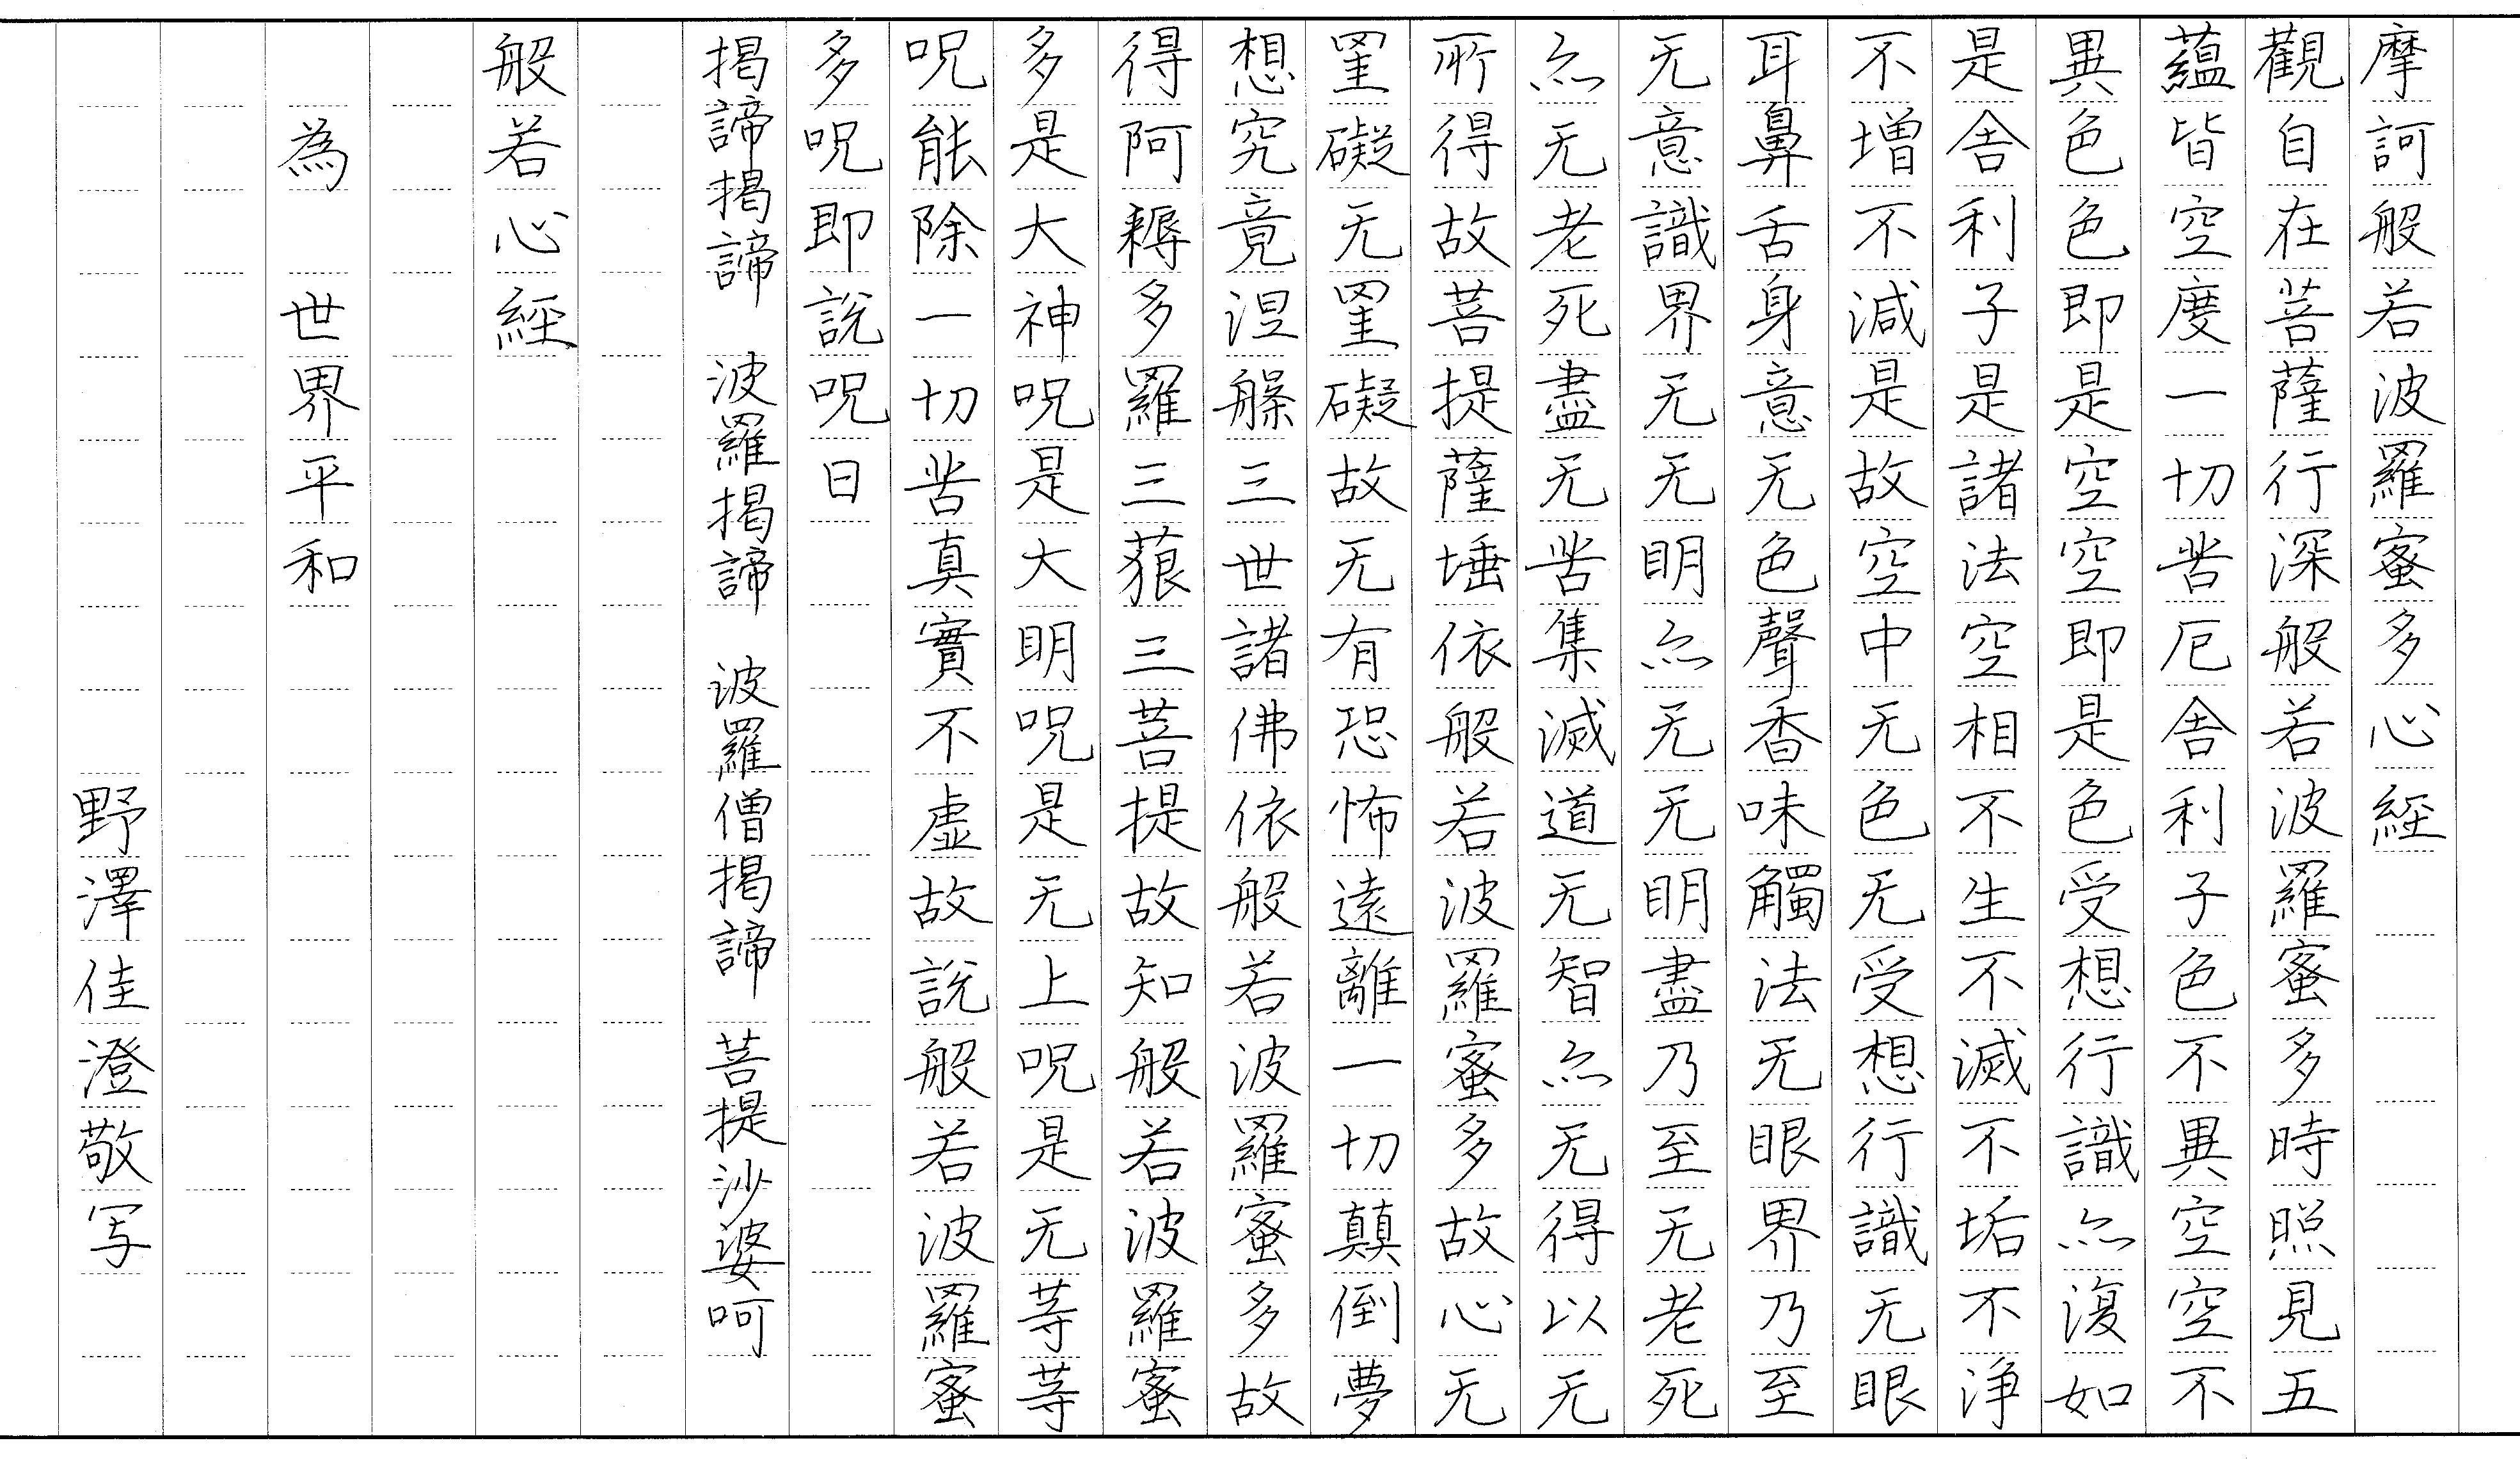 摩訶般若波羅蜜多心經
觀自在菩薩行深般若波羅蜜多時照見五
蘊皆空度一切苦厄舍利子色不異空空不
異色色即是空空即是色受想行識亦復如
是舍利子是諸法空相不生不滅不垢不淨
不增不減是故空中无色无受想行識无眼
耳鼻舌身意无色聲香味觸法无眼界乃至
无意識界无无明亦无无明盡乃至无老死
亦无老死盡无苦集滅道无智亦无得以无
所得故菩提薩埵依般若波羅蜜多故心无
罣礙无罣礙故无有恐怖遠離一切顛倒夢
想究竟涅槃三世諸佛依般若波羅蜜多故
得阿耨多羅三藐三菩提故知般若波羅蜜
多是大神呪是大明呪是无上呪是无等等
呪能除一切苦真實不虛故說般若波羅蜜
多呪即說呪曰
掲諦掲諦 波羅掲諦 波羅僧掲諦 菩提沙婆呵
般若心經
為 世界平和
野澤佳澄敬写